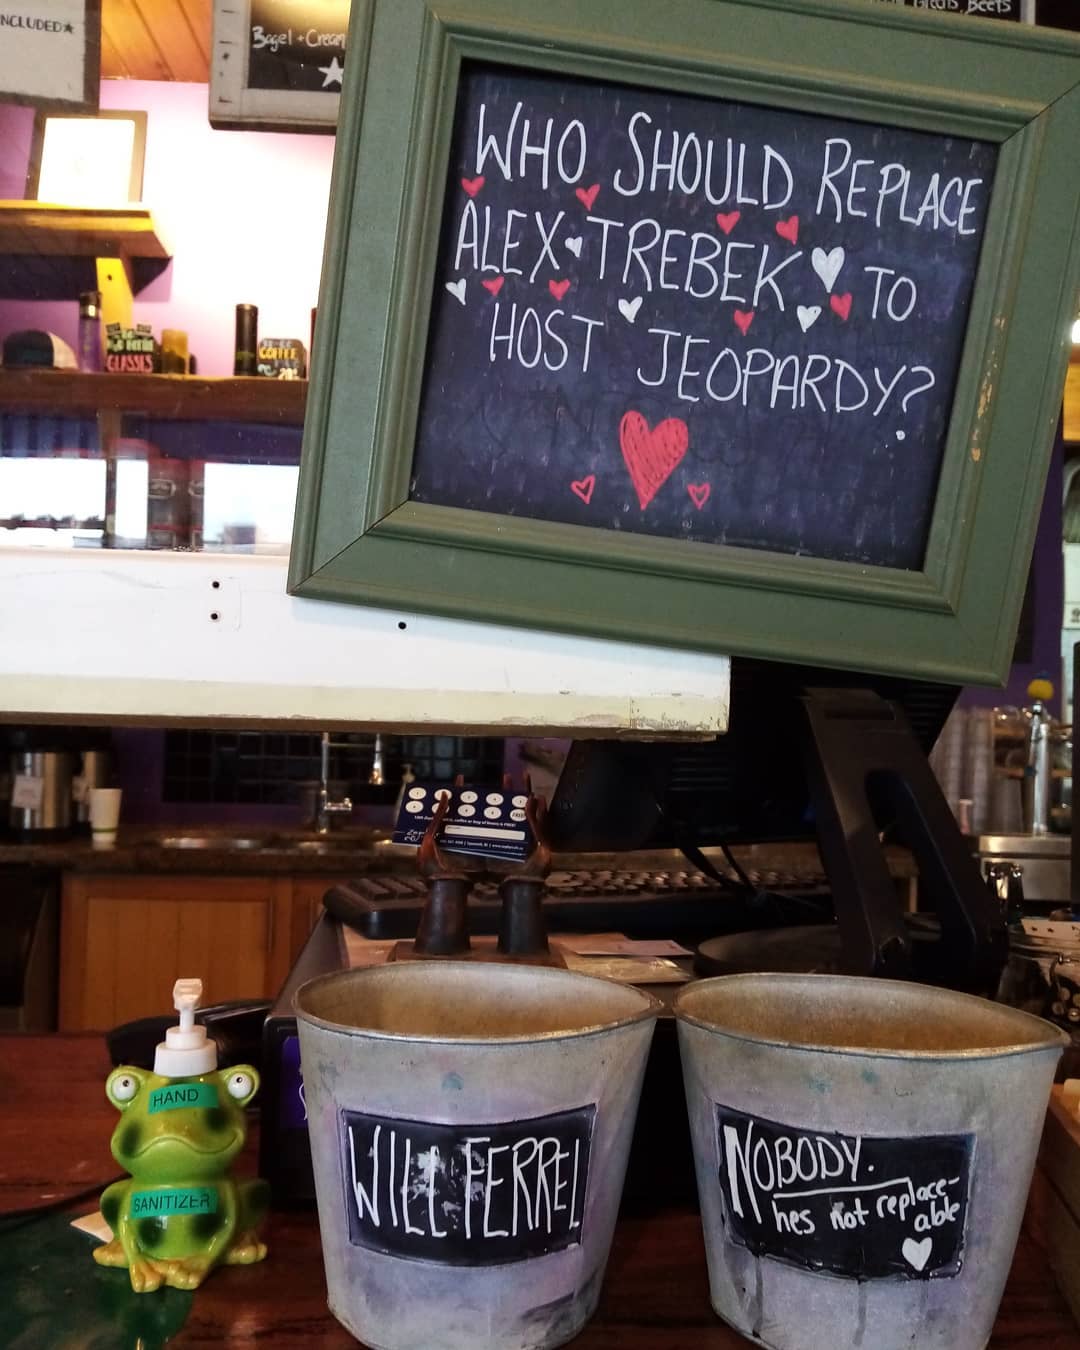 INCLUDED★
Bagel + Cream
Beets
WHO SHOULD REPLACE
ALEX TREBEK TO
HOST JEOPARDY?
GLASSES
COFFEE
FREE!
HAND
SANITIZER
WILL FERREL
NOBODY.
hes not replace-
able